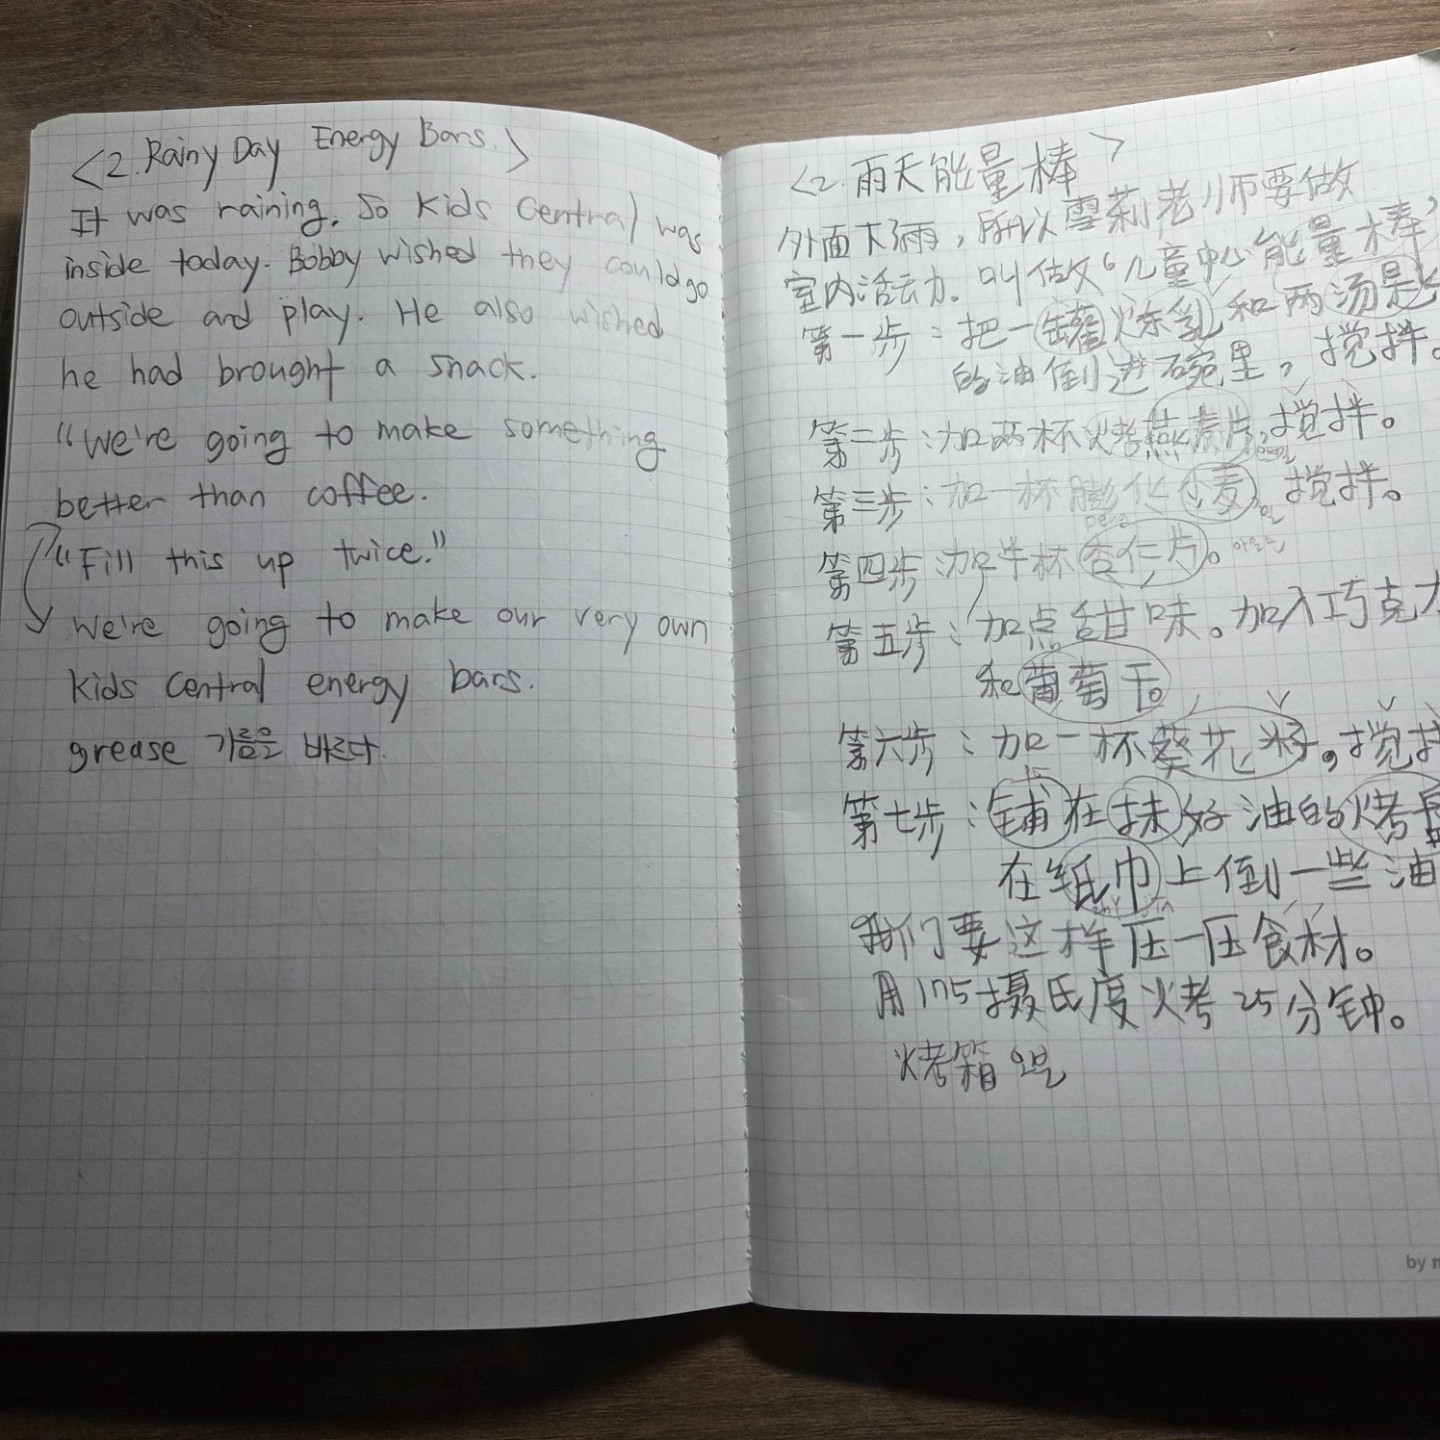 <2. Rainy Day Energy Bars.>
It was raining. So Kids Central was
inside today. Bobby wished they could go
outside and play. He also wished
he had brought a snack.
"We're going to make something
better than coffee.
"Fill this up twice."
We're going to make our very own
Kids Central energy bars.
grease 기름을 바르다.
<2. 雨天能量棒>
外面下雨，所以雪莉老师要做
室内活动。叫做“儿童中心能量棒”
第一步：把一罐炼乳和两汤匙
的油倒进碗里，搅拌。
第二步：加两杯烤燕麦片，搅拌。
第三步：加一杯膨化小麦，搅拌。
第四步：加半杯杏仁片。
第五步：加点甜味。加入巧克力
和葡萄干。
第六步：加一杯葵花籽，搅拌
第七步：铺在抹好油的烤
在纸巾上倒一些油
我们要这样压一压食材。
用175摄氏度烤25分钟。
烤箱 오븐
by